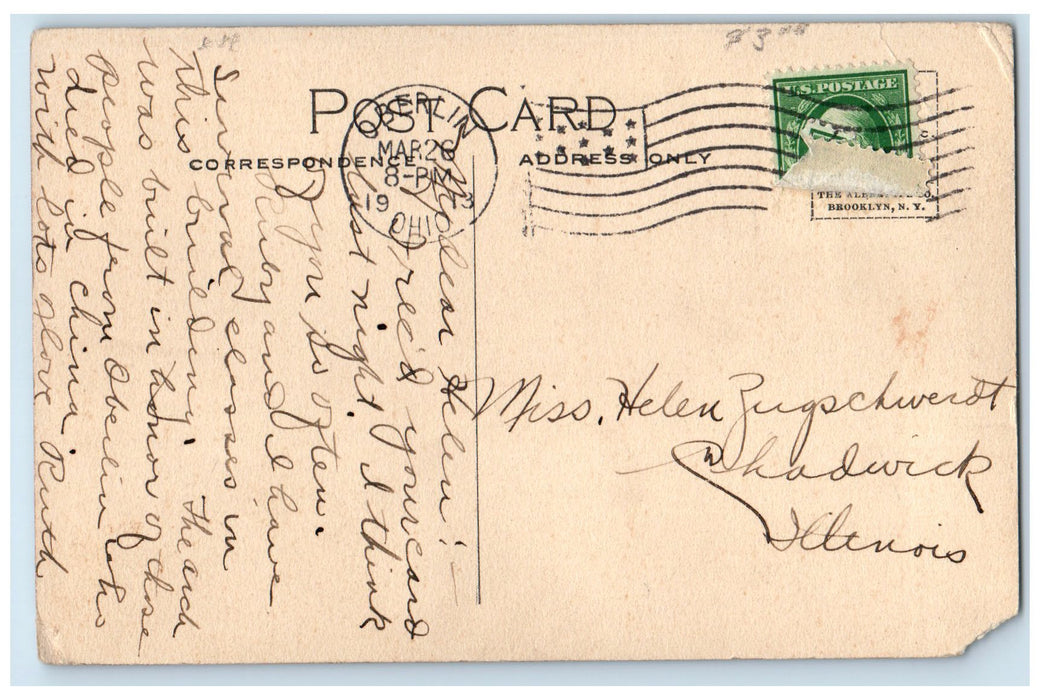 $3.00
POST CARD
CORRESPONDENCE
ADDRESS ONLY
OBERLIN
MAR 26
8-PM
19 3
OHIO
U.S. POSTAGE
THE ALB
BROOKLYN, N. Y.
My dear Helen:
I rec'd your card
last night. I think
of you so often.
Ruby and I have
several classes in
this building. The arch
was built in honor of those
people from Oberlin who
died in China.
With lots of love Ruth
Miss. Helen Zugschwerdt
Chadwick
Illinois